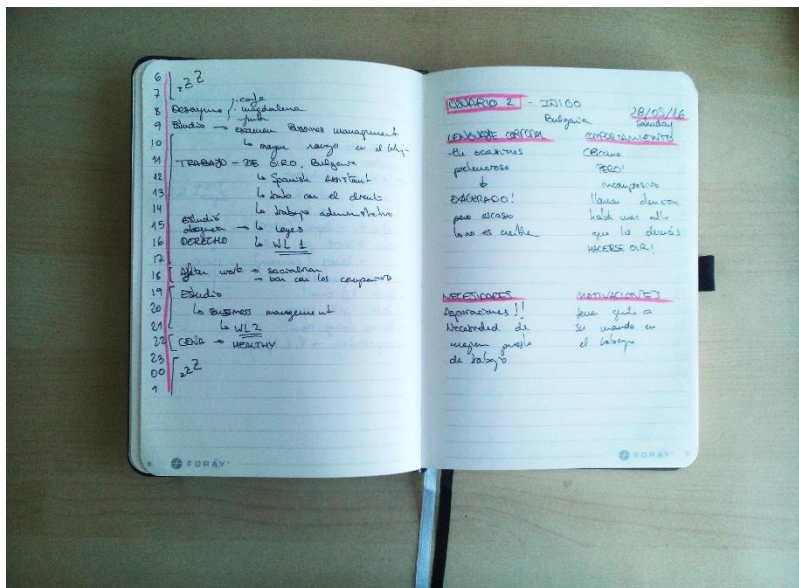 6
7 zzZ
8 Desayuno - café
- magdalena
- fruta
9 Estudio → examen Bussines management
10 ↳ mayor rango en el
11 TRABAJO - 28 EIRO, Bulgaria
12 ↳ Spanish Assistant
13 ↳ trato con el cliente
14 ↳ trabajo administrativo
15 Estudio → ↳ Leyes
16 DERECHO ↳ WL 1
17
18 After work → socializan
→ bar con los compañeros
19 Estudio
20 ↳ Bussiness management
21 ↳ WL2
22 CENA → HEALTHY
23
00 zzZ
1
FORAY
USUARIO 2 - IÑIGO
Bulgaria 28/05/16
Saturday
LENGUAJE CORPORAL
En ocasiones
↓
EXAGERADO!
pero escaso
↳ no es creíble
COMPORTAMIENTO
Cercano
PERO!
llama atención
habla más alto
que los demás
HACERSE OIR!
NECESIDADES
Aspiraciones!!
Necesidad de
mejor puesto
de trabajo
MOTIVACIONES
tener gente a
su mando en
el trabajo
FORAY